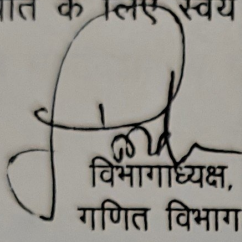 के लिए स्वयं
विभागाध्यक्ष,
गणित विभाग